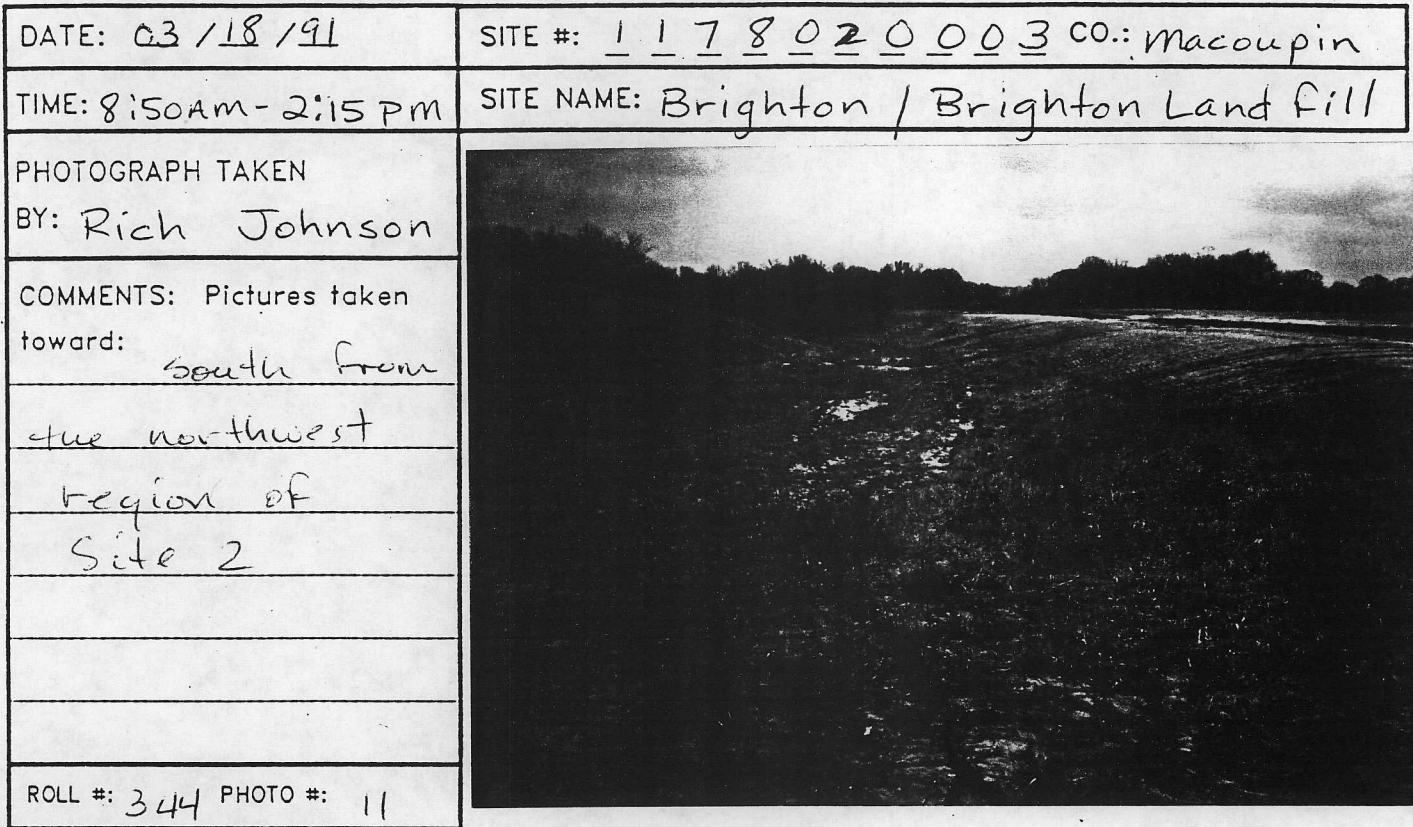 DATE: 03/18/91
SITE #: 1178020003 CO.: Macoupin
TIME: 8:50AM - 2:15 PM
SITE NAME: Brighton / Brighton Land fill
PHOTOGRAPH TAKEN
BY: Rich Johnson
COMMENTS: Pictures taken
toward:
south from
the northwest
region of
Site 2
ROLL #: 344 PHOTO #: 11